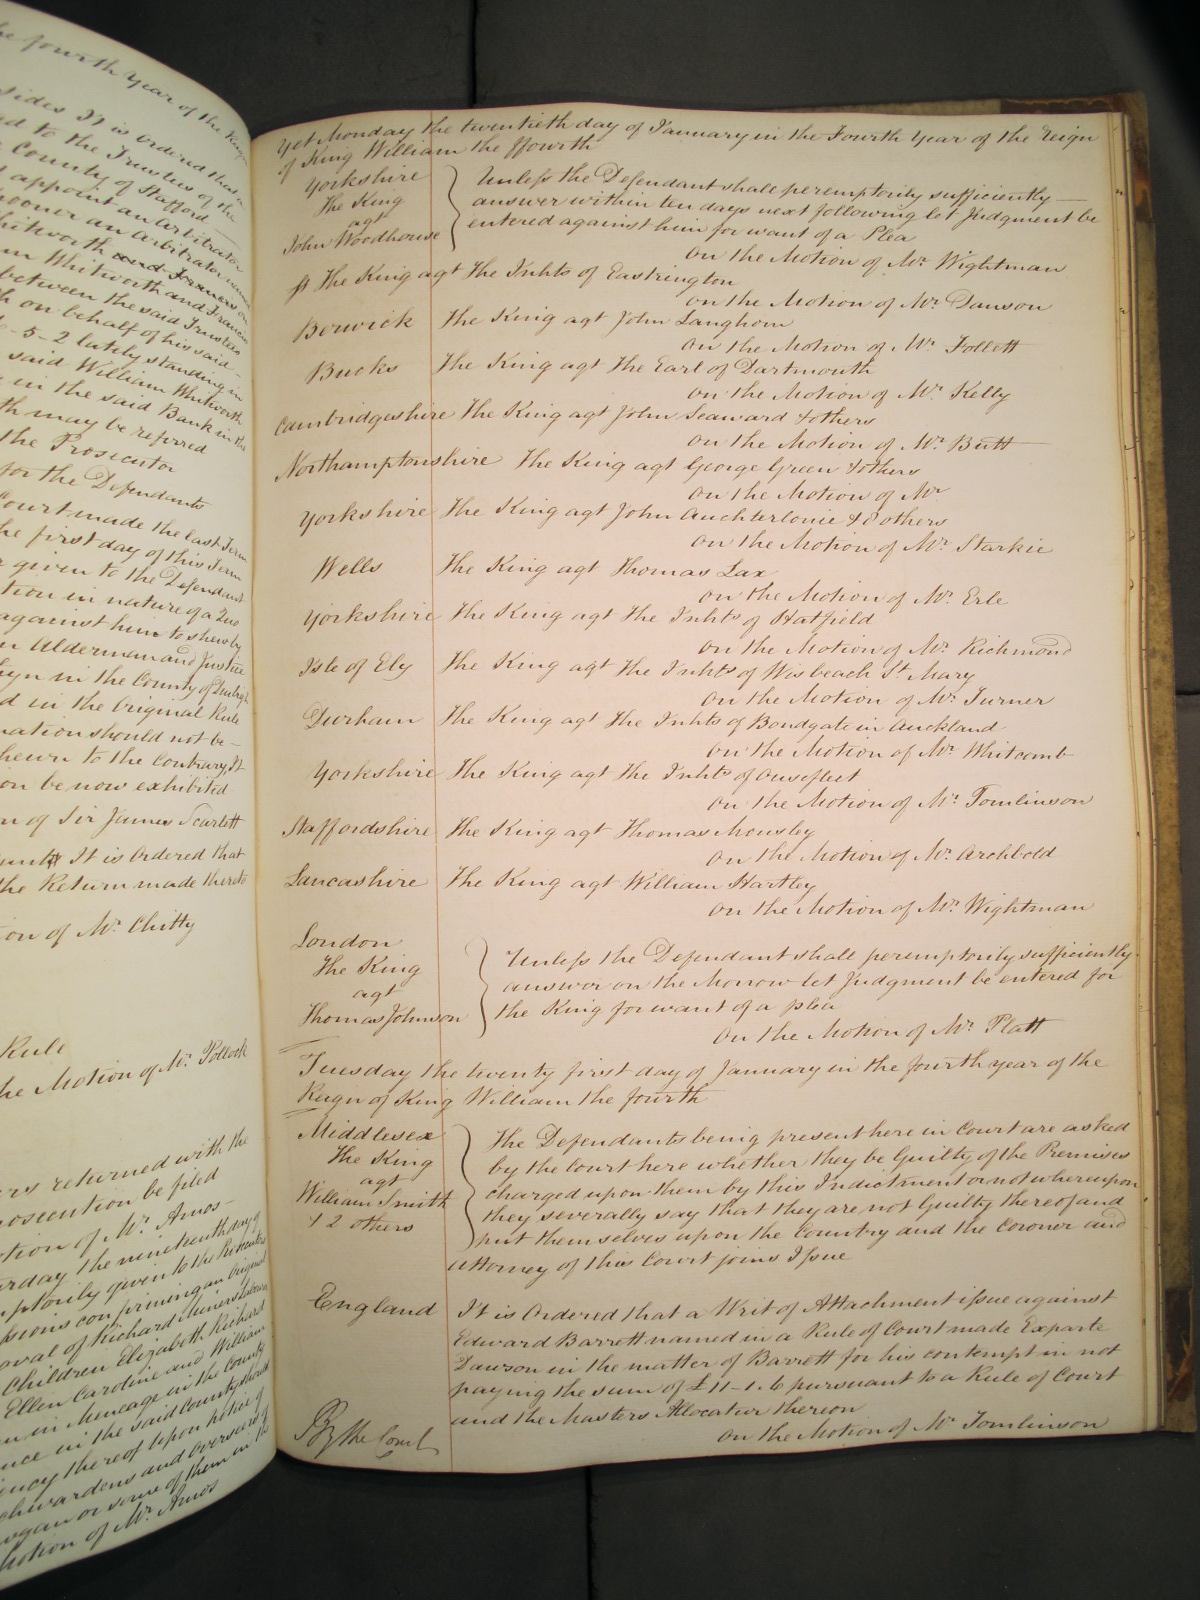 he fourth Year of the King
sides It is ordered that
to the Trustees of the
County of Stafford
appoint an Arbitrator
sooner an Arbitrator
hitworth and Frances
m Whitworth and Francis
between the said Trustees
on behalf of his said
5-2 lately standing in
said William Whitworth
in the said Bank in the
th may be referred
the Prosecutor
for the Defendants
Court made the last Term
he first day of this Term
given to the Defendant
tion in nature of a Quo
against him to shew by
n Alderman and Justice
eign in the County of
d in the Original Rule
mation should not be
hewn to the Contrary It
on be now exhibited
on of Sir James Scarlett
It is Ordered that
the Return made thereto
ion of Mr. Chitty
Rule
he Motion of Mr. Pollock
ers returned with the
rosecution be filed
otion of Mr. Amos
urday the nineteenth day of
mptorily given to the Prosecutor
ssions confirming an Original
oval of Richard
Children Elizabeth Richard
Ellen Caroline and William
in Meneage in the County
nce in the said County should
iency thereof upon notice of
chwardens and Overseers of
or some of them in the
Motion of Mr. Amos
Yet Monday the twentieth day of January in the Fourth Year of the Reign
of King William the ffourth
Yorkshire
The King
agt
John Woodhouse
Unless the Defendant shall peremptorily sufficiently
answer within ten days next following let Judgment be
entered against him for want of a Plea
On the Motion of Mr. Wightman
The King agt The Inhts of Eastrington
On the Motion of Mr. Dawson
Berwick The King agt John Langhorn
On the Motion of Mr. Follett
Bucks The King agt The Earl of Dartmouth
On the Motion of Mr. Kelly
Cambridgeshire The King agt John Seaward & others
On the Motion of Mr. Butt
Northamptonshire The King agt George Green & others
On the Motion of Mr
Yorkshire The King agt John Auchterlonie & 8 others
On the Motion of Mr. Starkie
Wells The King agt Thomas Lax
On the Motion of Mr. Erle
Yorkshire The King agt The Inhts of Hatfield
On the Motion of Mr. Richmond
Isle of Ely The King agt The Inhts of Wisbeach St. Mary
On the Motion of Mr. Turner
Durham The King agt The Inhts of Bondgate in Auckland
On the Motion of Mr. Whitcomb
Yorkshire The King agt The Inhts of Ousefleet
On the Motion of Mr. Tomlinson
Staffordshire The King agt Thomas Mousley
On the Motion of Mr. Archbold
Lancashire The King agt William Hartley
On the Motion of Mr. Wightman
London
The King
agt
Thomas Johnson
Unless the Defendant shall peremptorily sufficiently
answer on the Morrow let Judgment be entered for
the King for want of a plea
On the Motion of Mr. Platt
Tuesday the twenty first day of January in the fourth year of the
Reign of King William the fourth
Middlesex
The King
agt
William Smith
& 2 others
The Defendants being present here in Court are asked
by the Court here whether they be Guilty of the Premises
charged upon them by this Indictment or not whereupon
they severally say that they are not Guilty thereof and
put themselves upon the Country and the Coroner and
Attorney of this Court joins Issue
England It is Ordered that a Writ of Attachment issue against
Edward Barrett named in a Rule of Court made Exparte
Dawson in the matter of Barrett for his contempt in not
paying the sum of £11-1.6 pursuant to a Rule of Court
and the Masters Allocatur thereon
On the Motion of Mr Tomlinson
By the Court